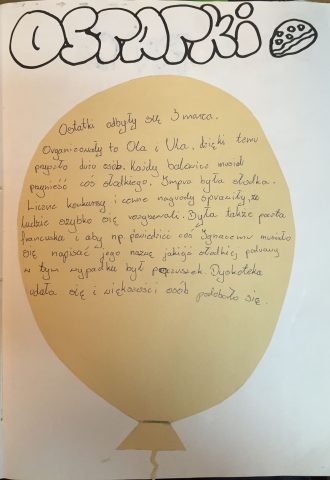 OSTATKI
Ostatki odbyły się 3 marca.
Organizowały to Ola i Ula, dzięki temu
przyszło dużo osób. Każdy balowicz musiał
przynieść coś słodkiego. Impra była słodka.
Liczne konkursy i cenne nagrody sprawiły, że
ludzie szybko się rozgrywali. Była także poczta
francuska i aby np powiedzieć coś Ignacemu musiało
się napisać jego nazwę jakiejś słodkiej potrawy
w tym wypadku był pączuszek. Dyskoteka
udała się i większości osób podobało się.